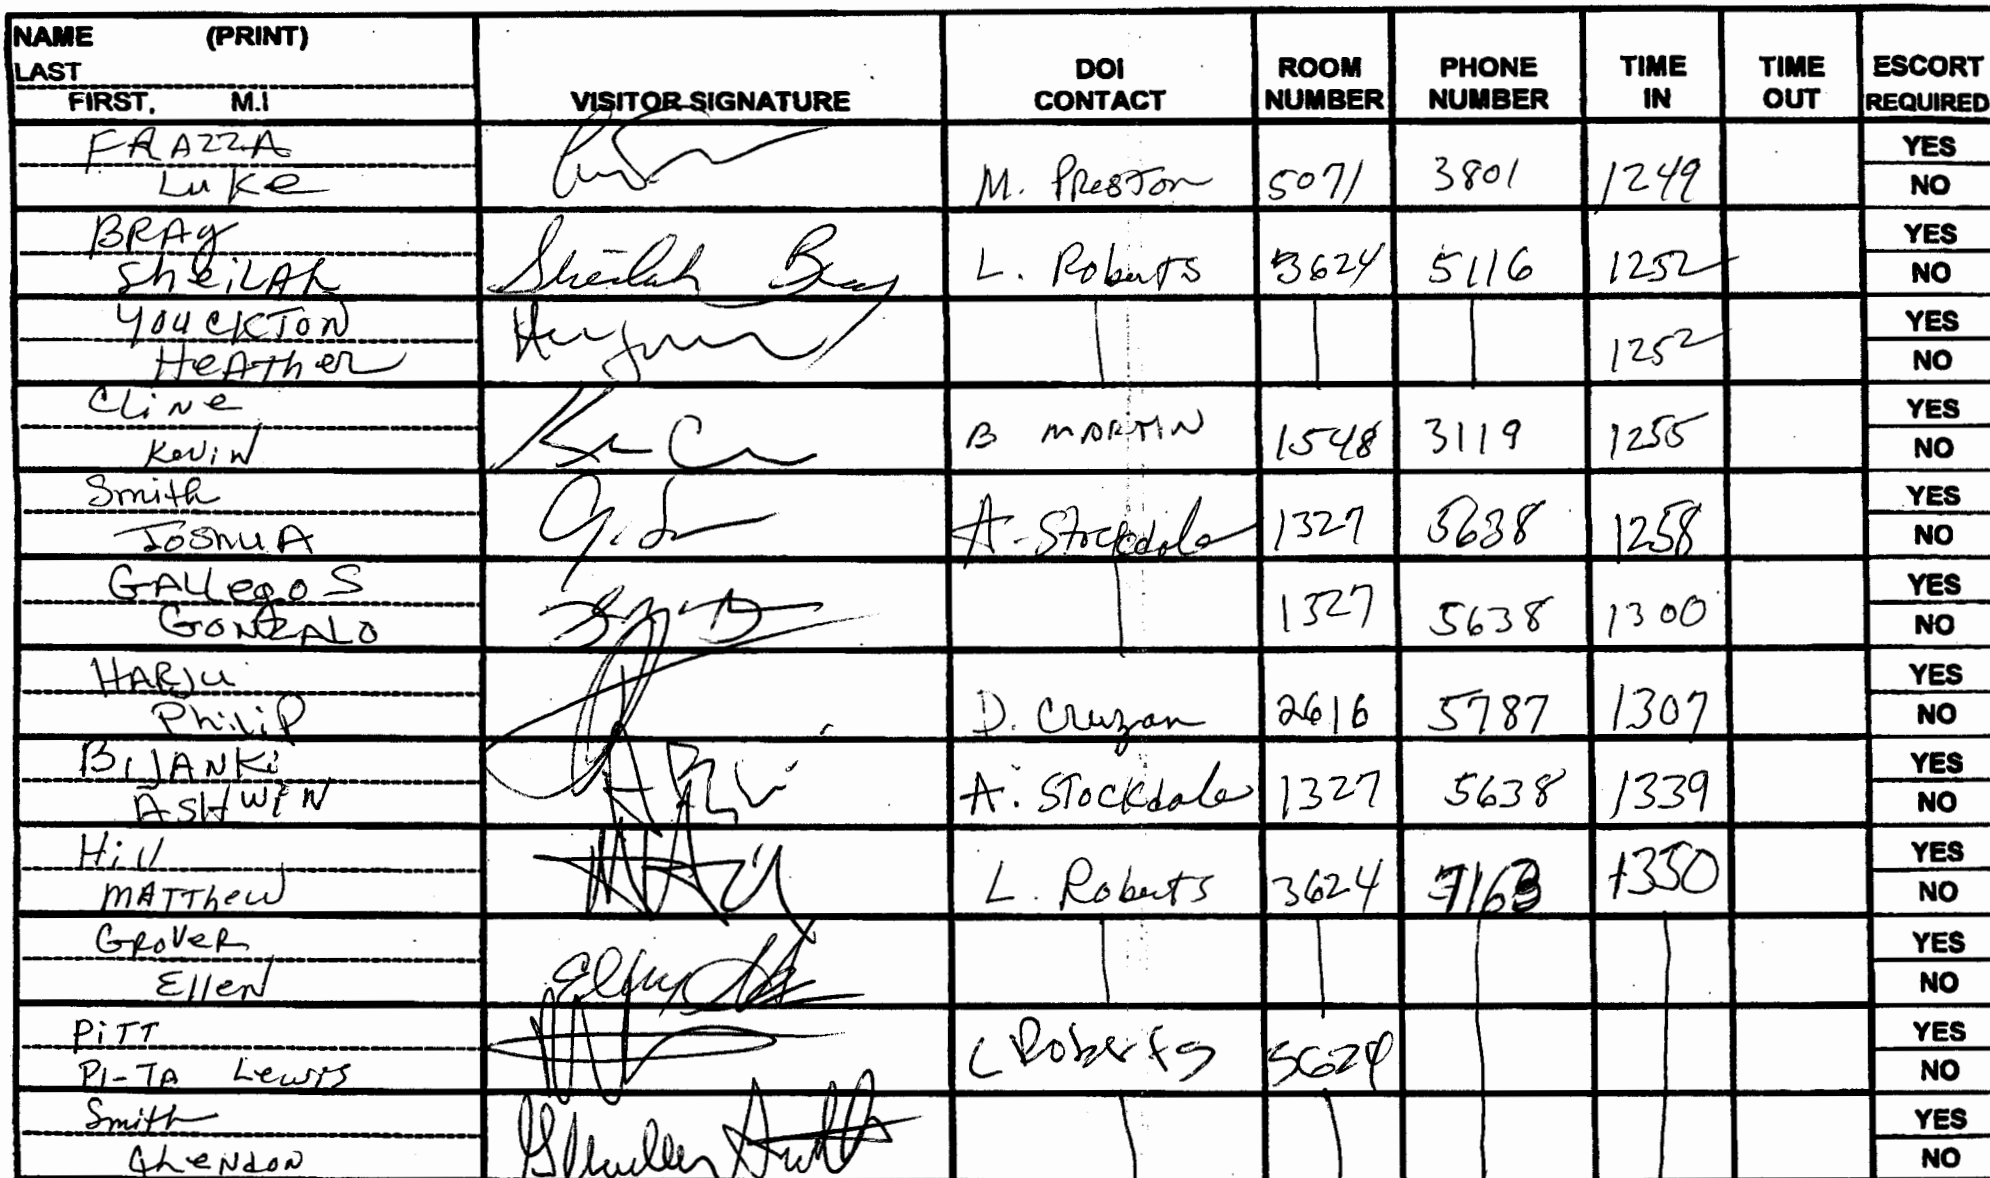 NAME (PRINT)
LAST
FIRST, M.I
VISITOR SIGNATURE
DOI CONTACT
ROOM NUMBER
PHONE NUMBER
TIME IN
TIME OUT
ESCORT REQUIRED
FRAZZA
Luke
M. Preston 5071 3801 1249
YES
NO
BRAY
SheiLAh
Sheilah Bray
L. Roberts 3624 5116 1252
YES
NO
YOUCKTON
HeATher
1252
YES
NO
CLiNe
KeviN
B MARTIN 1548 3119 1255
YES
NO
Smith
JOSHUA
A. Stockdale 1327 5638 1258
YES
NO
GALLegoS
GONZALO
1327 5638 1300
YES
NO
HARJu
PhiliP
D. Cruzan 2616 5787 1307
YES
NO
BIJANKi
ASHWIN
A. Stockdale 1327 5638 1339
YES
NO
Hill
MATThew
L. Roberts 3624 1350
YES
NO
GROVER
Ellen
YES
NO
PiTT
PI-TA Lewis
L Roberts
YES
NO
Smith
YES
NO